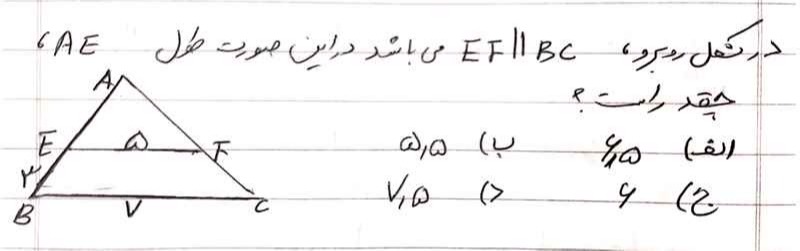 در شکل روبرو، EF || BC می باشد در این صورت طول AE،
چقدر است؟
الف) ۶٫۵ ب) ۵٫۵
ج) ۶ د) ۷٫۵
A
E ۵ F
۳
B ۷ C